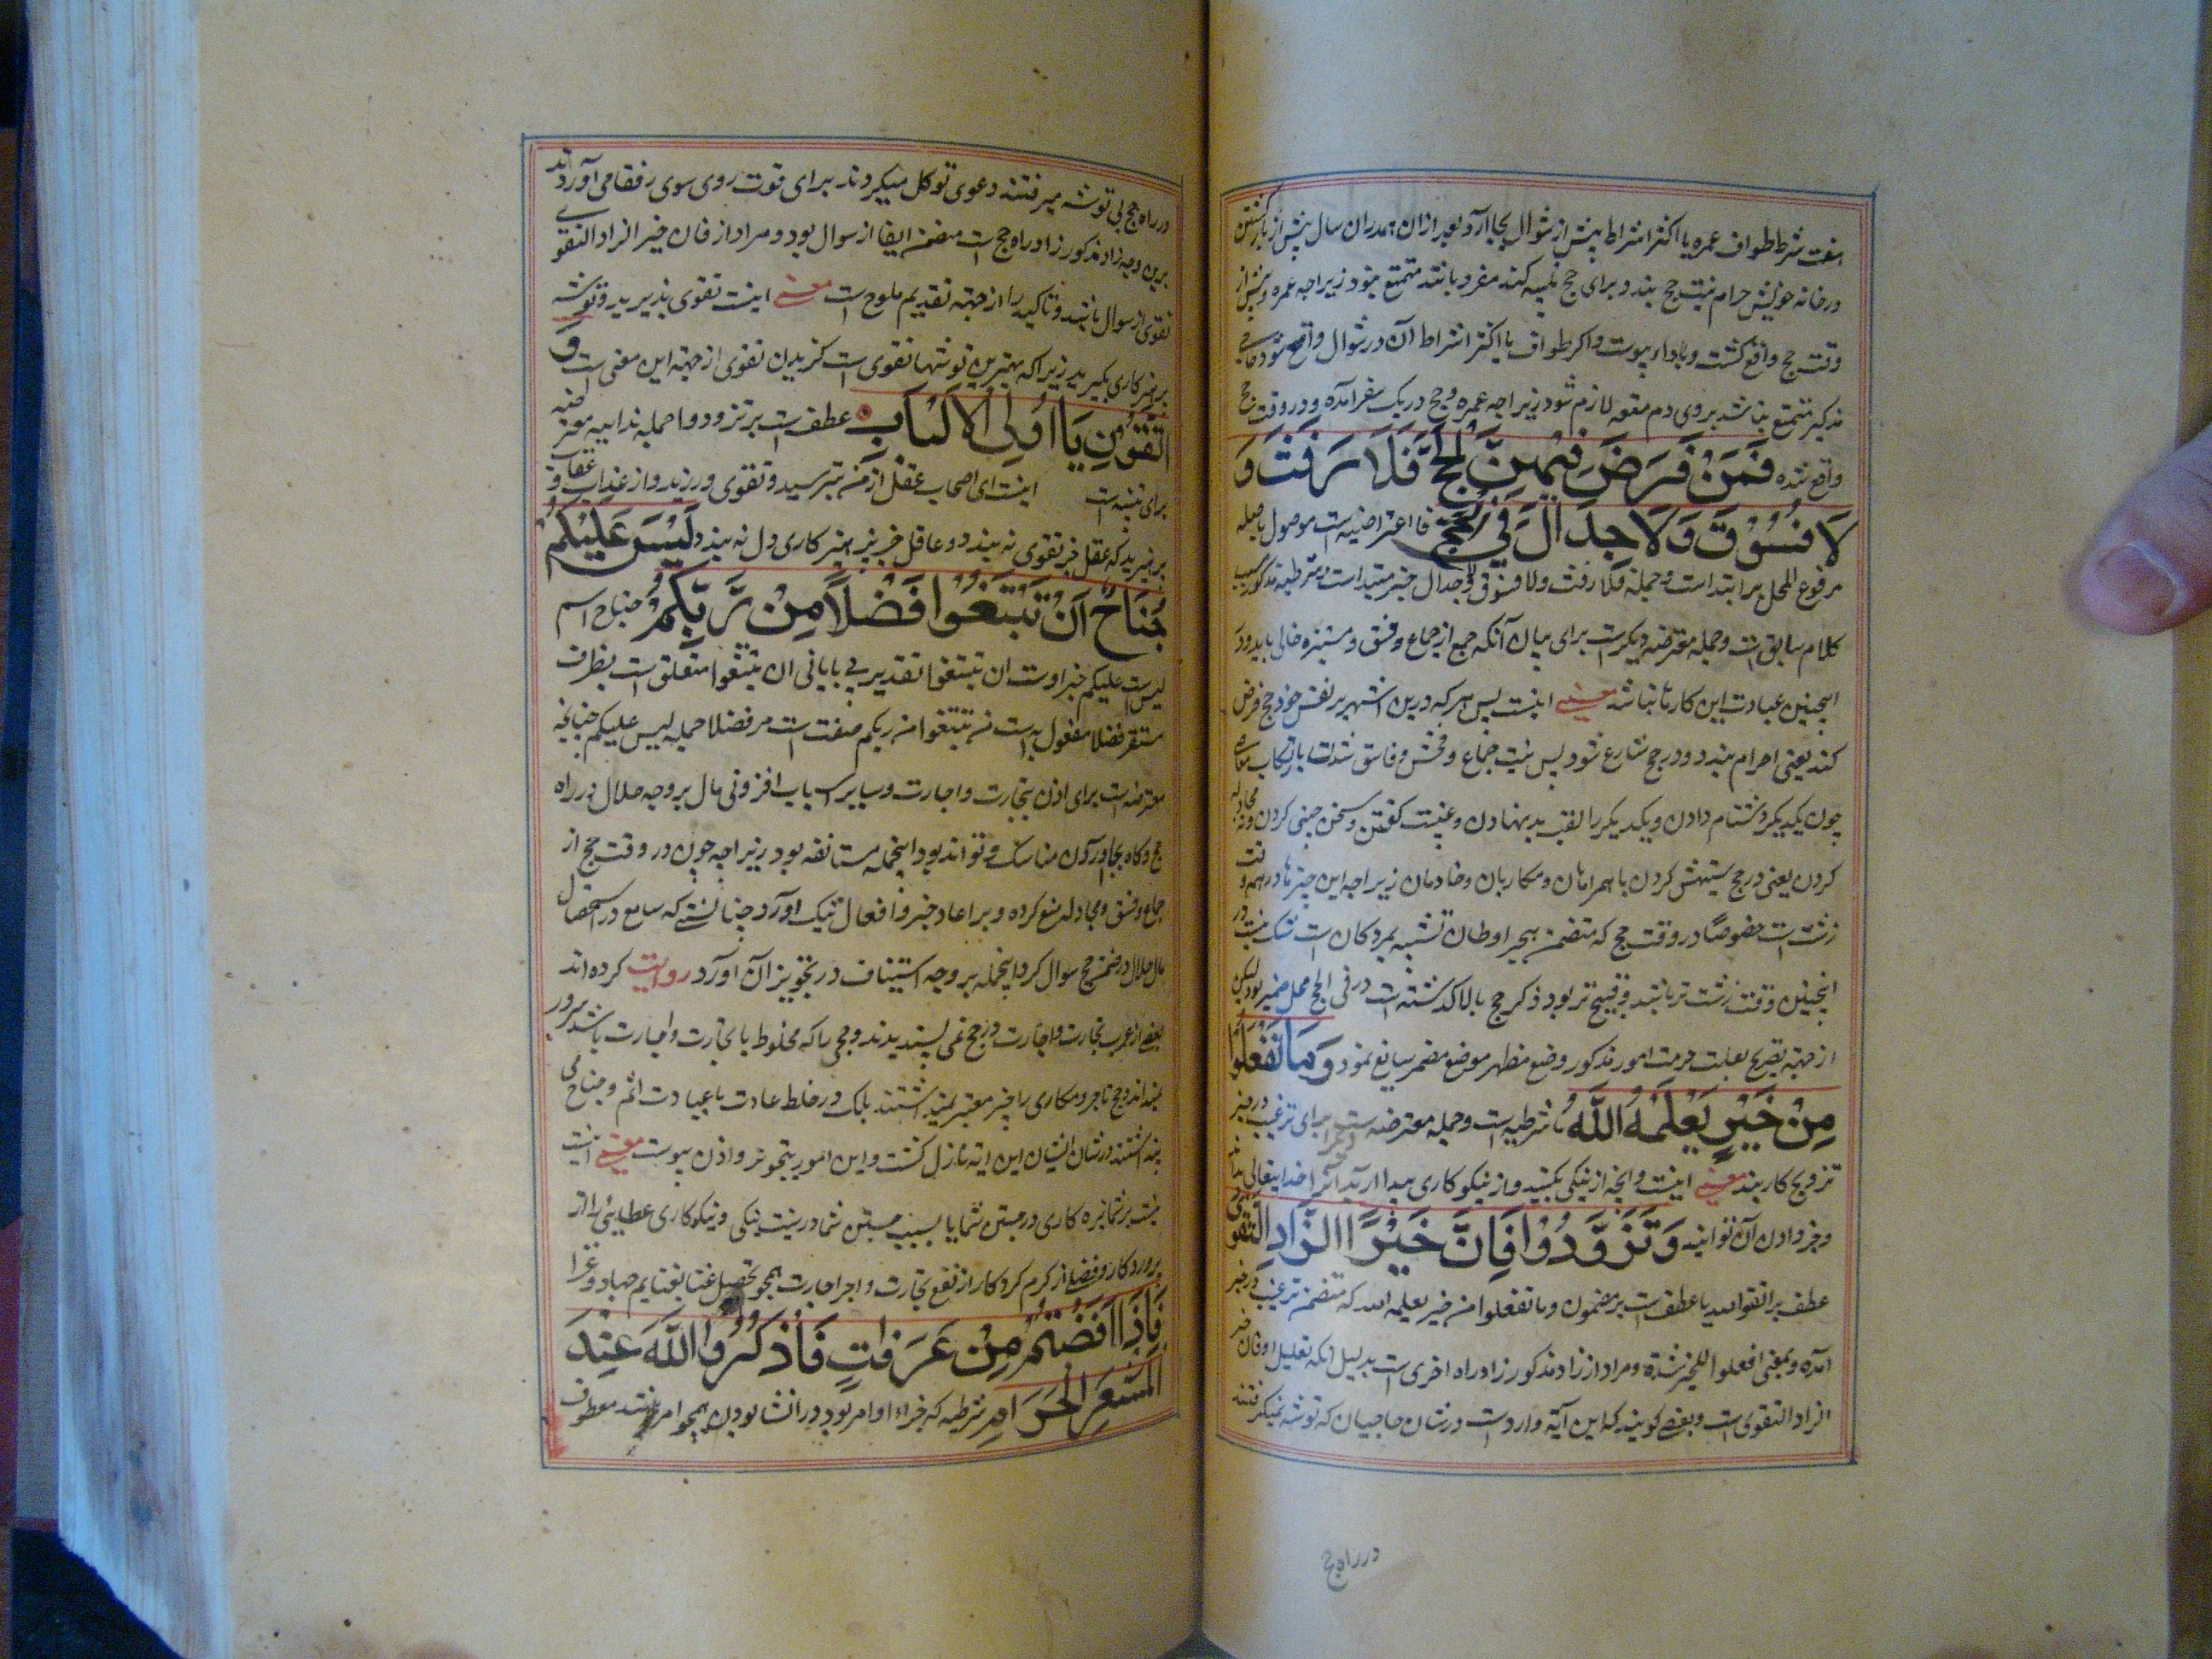 هفت شرط طواف عمره یا اکثر اشراط پیش از شوال بجا آرد بعد ازان هم دران سال پیش از بازگشتن
در خانه خویش حرام نیت حج بندد برای حج تلبیه کند مفرد باشد متمتع نبود زیراچه عمره پیش از
وقت حج واقع گشت و باداء پیوست و اگر طواف یا اکثر اشراط آن در شوال واقع شود
متمتع باشد بروی دم متعه لازم شود زیراچه عمره و حج در یک سفر آمده و در وقت حج
واقع شده فَمَنْ فَرَضَ فِيهِنَّ الْحَجَّ فَلَا رَفَثَ وَ
لَا فُسُوقَ وَلَا جِدَالَ فِي الْحَجِّ فا اعتراضیه است موصول باصله
مرفوع المحل بر ابتدا است و جمله فلا رفث ولا فسوق ولا جدال خبر مبتدا است
کلام سابق است و جمله معترضه دیگر است برای بیان آنکه حج از جماع و فسق و ستیزه خالی باید
اینچنین عبادت این کارها نباشد معنی اینست پس هر که درین اشهر بر نفس خود حج فرض
کند یعنی احرام بندد و در حج شارع شود پس نیست جماع و فحش و فاسق شدن بارتکاب
چون یکدیگر دشنام دادن و یکدیگر را لقب بد نهادن و غیبت گفتن و سخن چینی کردن و نه مجادله
کردن یعنی در حج ستیهش کردن با همراهان و مکاریان و خادمان زیراچه این چیزها در همه وقت
زشت است خصوصاً در وقت حج که متضمن هجر اوطان تشبه بمردگان است
اینچنین وقت زشت تر باشد و قبیح تر بود ذکر حج بالا گذشته است در فی الحج محل ضمیر بود لیکن
از جهة تصریح بعلت حرمت امور مذکور وضع مظهر موضع مضمر سایغ نمود وَمَا تَفْعَلُوا
مِنْ خَيْرٍ يَعْلَمْهُ اللَّهُ ما شرطیه است و جمله معترضه است برای ترغیب در خیر
معنی اینست و آنچه از نیکی بکنید و از نیکوکاری خدایتعالی
وَتَزَوَّدُوا فَإِنَّ خَيْرَ الزَّادِ التَّقْوَى
عطف بر اتقوا الله یا عطف است بر مضمون وما تفعلوا من خیر یعلمه الله که متضمن ترغیب در خیر
آمده و بمعنی افعلوا الخیر شده و مراد از زاد مذکور زاد راه اخری است بدلیل آنکه تعلیل او فان خیر
الزاد التقوی است و بعضی گویند که این آیة وارد است در شان حاجیان که توشه نمیگرفتند
در راه حج
در راه حج بی توشه میرفتند دعوی توکل میکردند برای قوت روی سوی رفقا می آوردند
برین وجه زاد مذکور زاد راه حج است متضمن ایفا از سوال بود و مراد از فان خیر الزاد التقوی
تقوی از سوال باشد و تاکید را از جهة تقدیم ملوح است معنی اینست تقوی پذیرید و توشه
پرهیزکاری بگیرید زیراکه بهترین توشها تقوی است گزیدن تقوی از جهة این معنی است وَ
اتَّقُونِ يَا أُولِي الْأَلْبَابِ عطف است بر تزودوا جمله ندائیه معترضه
برای تنبیه است اینست ای اصحاب عقل از من بترسید و تقوی ورزید و از عذاب و عقاب
بپرهیزید که عقل جز تقوی نه بیند و عاقل جز بپرهیزکاری دل نه بندد لَيْسَ عَلَيْكُمْ
جُنَاحٌ أَنْ تَبْتَغُوا فَضْلًا مِنْ رَبِّكُمْ جناح اسم
لیس است علیکم خبر اوست ان تبتغوا بتقدیر فی یا بانی ان تبتغوا متعلق است بظرف
مستقر فضلا مفعول به است من تبتغوا من ربکم صفت است مر فضلا جمله لیس علیکم جناح
معترضه است برای اذن بتجارت و اجارت و سایر اسباب افزونی مال بر وجه حلال در راه
حج و گاه بجا آوردن مناسک و تواند بود اینجمله مستانفه بود زیراچه چون در وقت حج از
جماع و فسق و مجادله منع کرده و بر اعاد خیر و افعال نیک آورد چنانستی که سامع در استحصال
مال حلال در ضمن حج سوال کرد اینجمله بر وجه استیناف در تجویز آن آورد روایت کرده اند
بعض از عرب تجارت و اجارت در حج نمی پسندیدند و حجی را که مخلوط با تجارت و اجارت باشد مبرور
نپنداند و حج تاجر و مکاری را چیز معتبر نمیداشتند بلکه در خلط عادت با عبادت اثم و جناح می
پنداشتند در شان ایشان این آیه نازل گشت و این امور بتجویز و اذن پیوست معنی اینست
نیست بر شما بزه کاری در جستن شما یا بسبب جستن شما در نیت نیکی و نیکوکاری عطایی را از
پروردگار و فضلی از کرم کردگار از نفع تجارت و اجر اجارت همچو تحصیل غنا بغنایم جهاد و غزا
فَإِذَا أَفَضْتُمْ مِنْ عَرَفَاتٍ فَاذْكُرُوا اللَّهَ عِنْدَ
الْمَشْعَرِ الْحَرَامِ شرطیه که جزاء او امر بود در انشا بودن همچو امر باشد معطوف